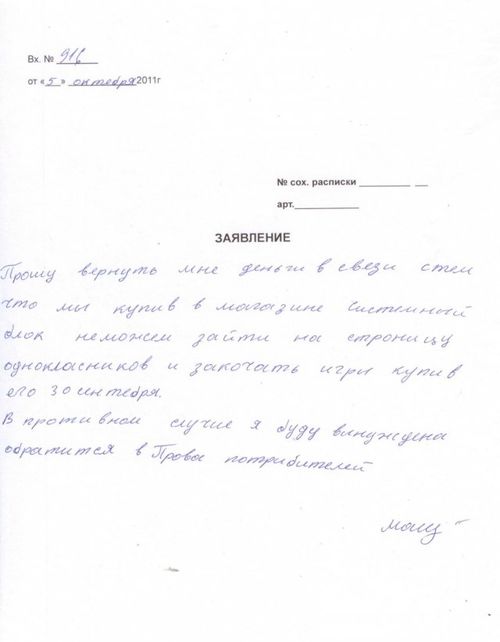 Вх. № 916
от «5» октебря 2011г
№ сох. расписки ________ __
арт.__________
ЗАЯВЛЕНИЕ
Прошу вернуть мне деньги в свези стем
что мы купив в магазине системный
блок неможем зайти на строницу
однокласников и закочать игры купив
его 30 синтебря.
В противном случие я буду винуждена
обратится в Права потрибителей